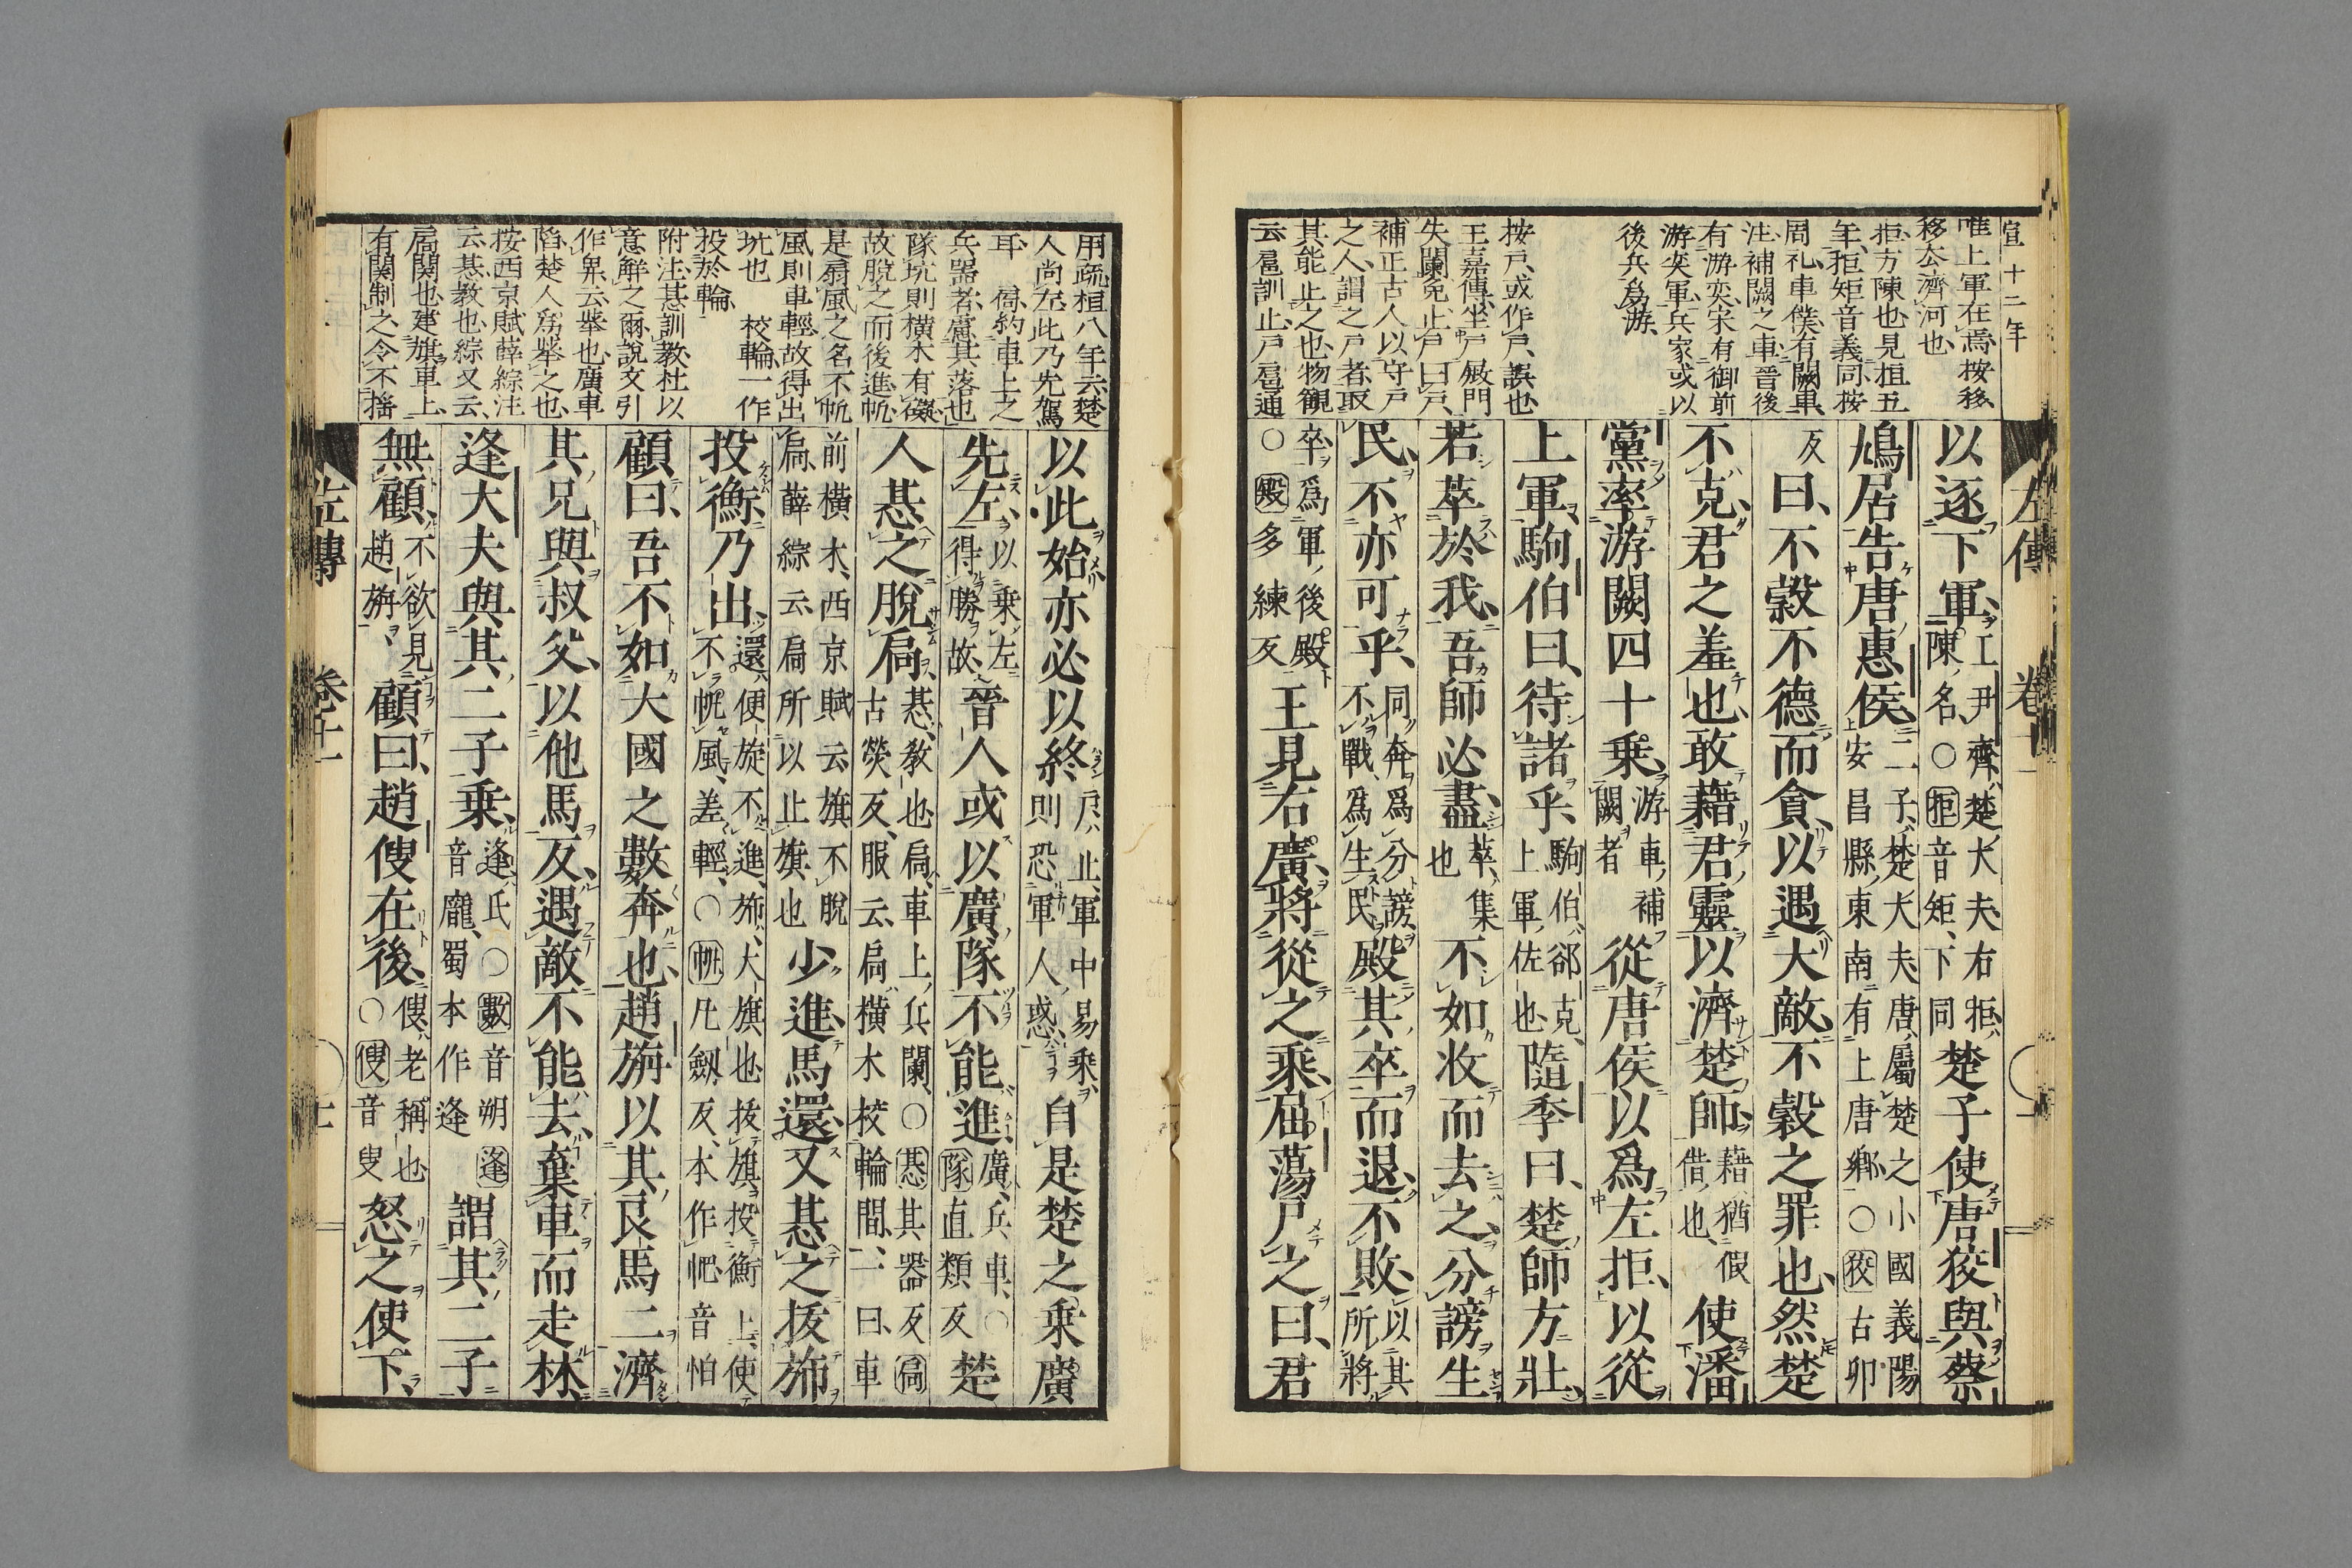 宣十二年
唯上軍在焉按移
移公濟河也
拒方陳也見桓五
年拒矩音義同按
周礼車僕有闕車
注補闕之車晉後
有游奕宋有御前
游奕軍兵家或以
後兵爲游
按戸或作尸誤也
王嘉傳坐戸殿門
失闌免止戸曰戸
補正古人以守戸
之人謂之戸者取
其能止之也物觀
云扈訓止戸扈通
左傳 卷十一
以逐下軍
工尹齊楚大夫右拒
陳名○拒音矩下同
楚子使唐狡與蔡
鳩居告唐惠侯
二子楚大夫唐屬楚之小國義陽
安昌縣東南有上唐鄉○狡古卯
反
曰不穀不德而貪以遇大敵不穀之罪也然楚
不克君之羞也敢藉君靈以濟楚師
藉猶假
借也
使潘
黨率游闕四十乘
游車補
闕者
從唐侯以爲左拒以從
上軍駒伯曰待諸乎
駒伯郤克
上軍佐也
隨季曰楚師方壯
若萃於我吾師必盡
萃集
也
不如收而去之分謗生
民不亦可乎
同奔爲分謗
不戰爲生民
殿其卒而退不敗
以其
所將
卒爲軍後殿
○殿多練反
王見右廣將從之乘屈蕩戸之曰君
用疏桓八年云楚
人尚左此乃先駕
耳 㑺約車上之
兵器者慮其落也
隊坑則横木有礙
故脱之而後進帆
是扇風之名不帆
風則車輕故得出
坑也 校輪一作
投於輪
附注惎訓教杜以
意解之爾説文引
作㠱云舉也廣車
陷楚人爲舉之也
按西京賦薛綜注
云惎教也綜又云
扃関也建旗車上
有関制之令不搖
以此始亦必以終
戸止軍中易乘
則恐軍人惑
自是楚之乘廣
先左
以乘左
得勝故
晉人或以廣隊不能進
廣兵車○
隊直類反
楚
人惎之脱扃
惎教也扃車上兵闌○惎其器反扃
古熒反服云扃横木校輪間一曰車
前横木西京賦云旗不脱
扃薛綜云扃所以止旗也
少進馬還又惎之拔旆
投衡乃出
還便旋不進旆大旗也拔旗投衡上使
不帆風差輕○帆凡劔反本作㠶音怕
顧曰吾不如大國之數奔也趙旃以其良馬二濟
其兄與叔父以他馬反遇敵不能去棄車而走林
逢大夫與其二子乘
逢氏○數音朔逢
音龐蜀本作逄
謂其二子
無顧
不欲見
趙旃
顧曰趙傁在後
傁老稱也
○傁音叟
怒之使下
左傳 卷十一